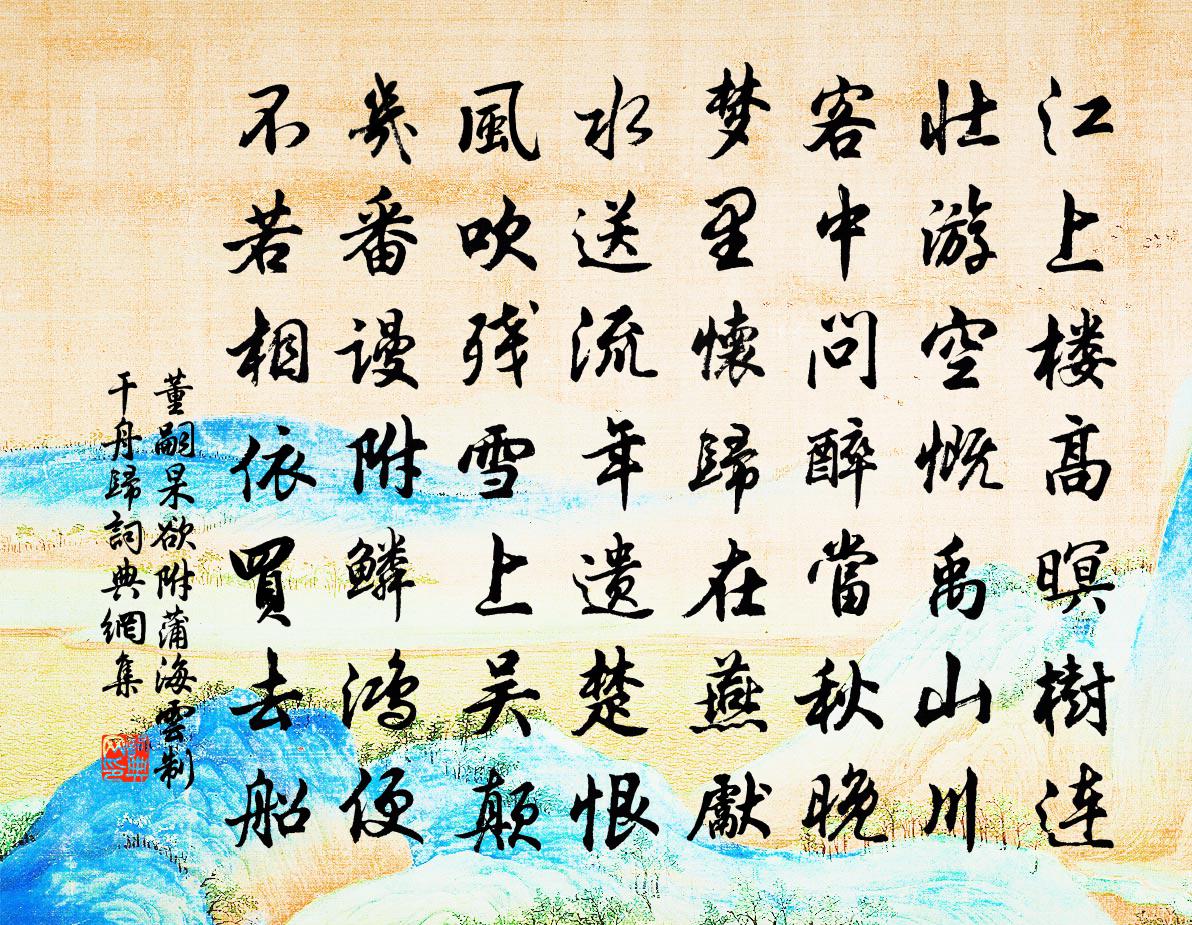 江上楼高暝樹連
壮游空慨禹山川
客中问醉當秋晚
梦里懷歸在燕獻
水送流年遗楚恨
風吹残雪上吴颠
幾番谩附鱗鸿便
不若相依買去船
董嗣杲欲附蒲海雲制
干舟歸詞典網集